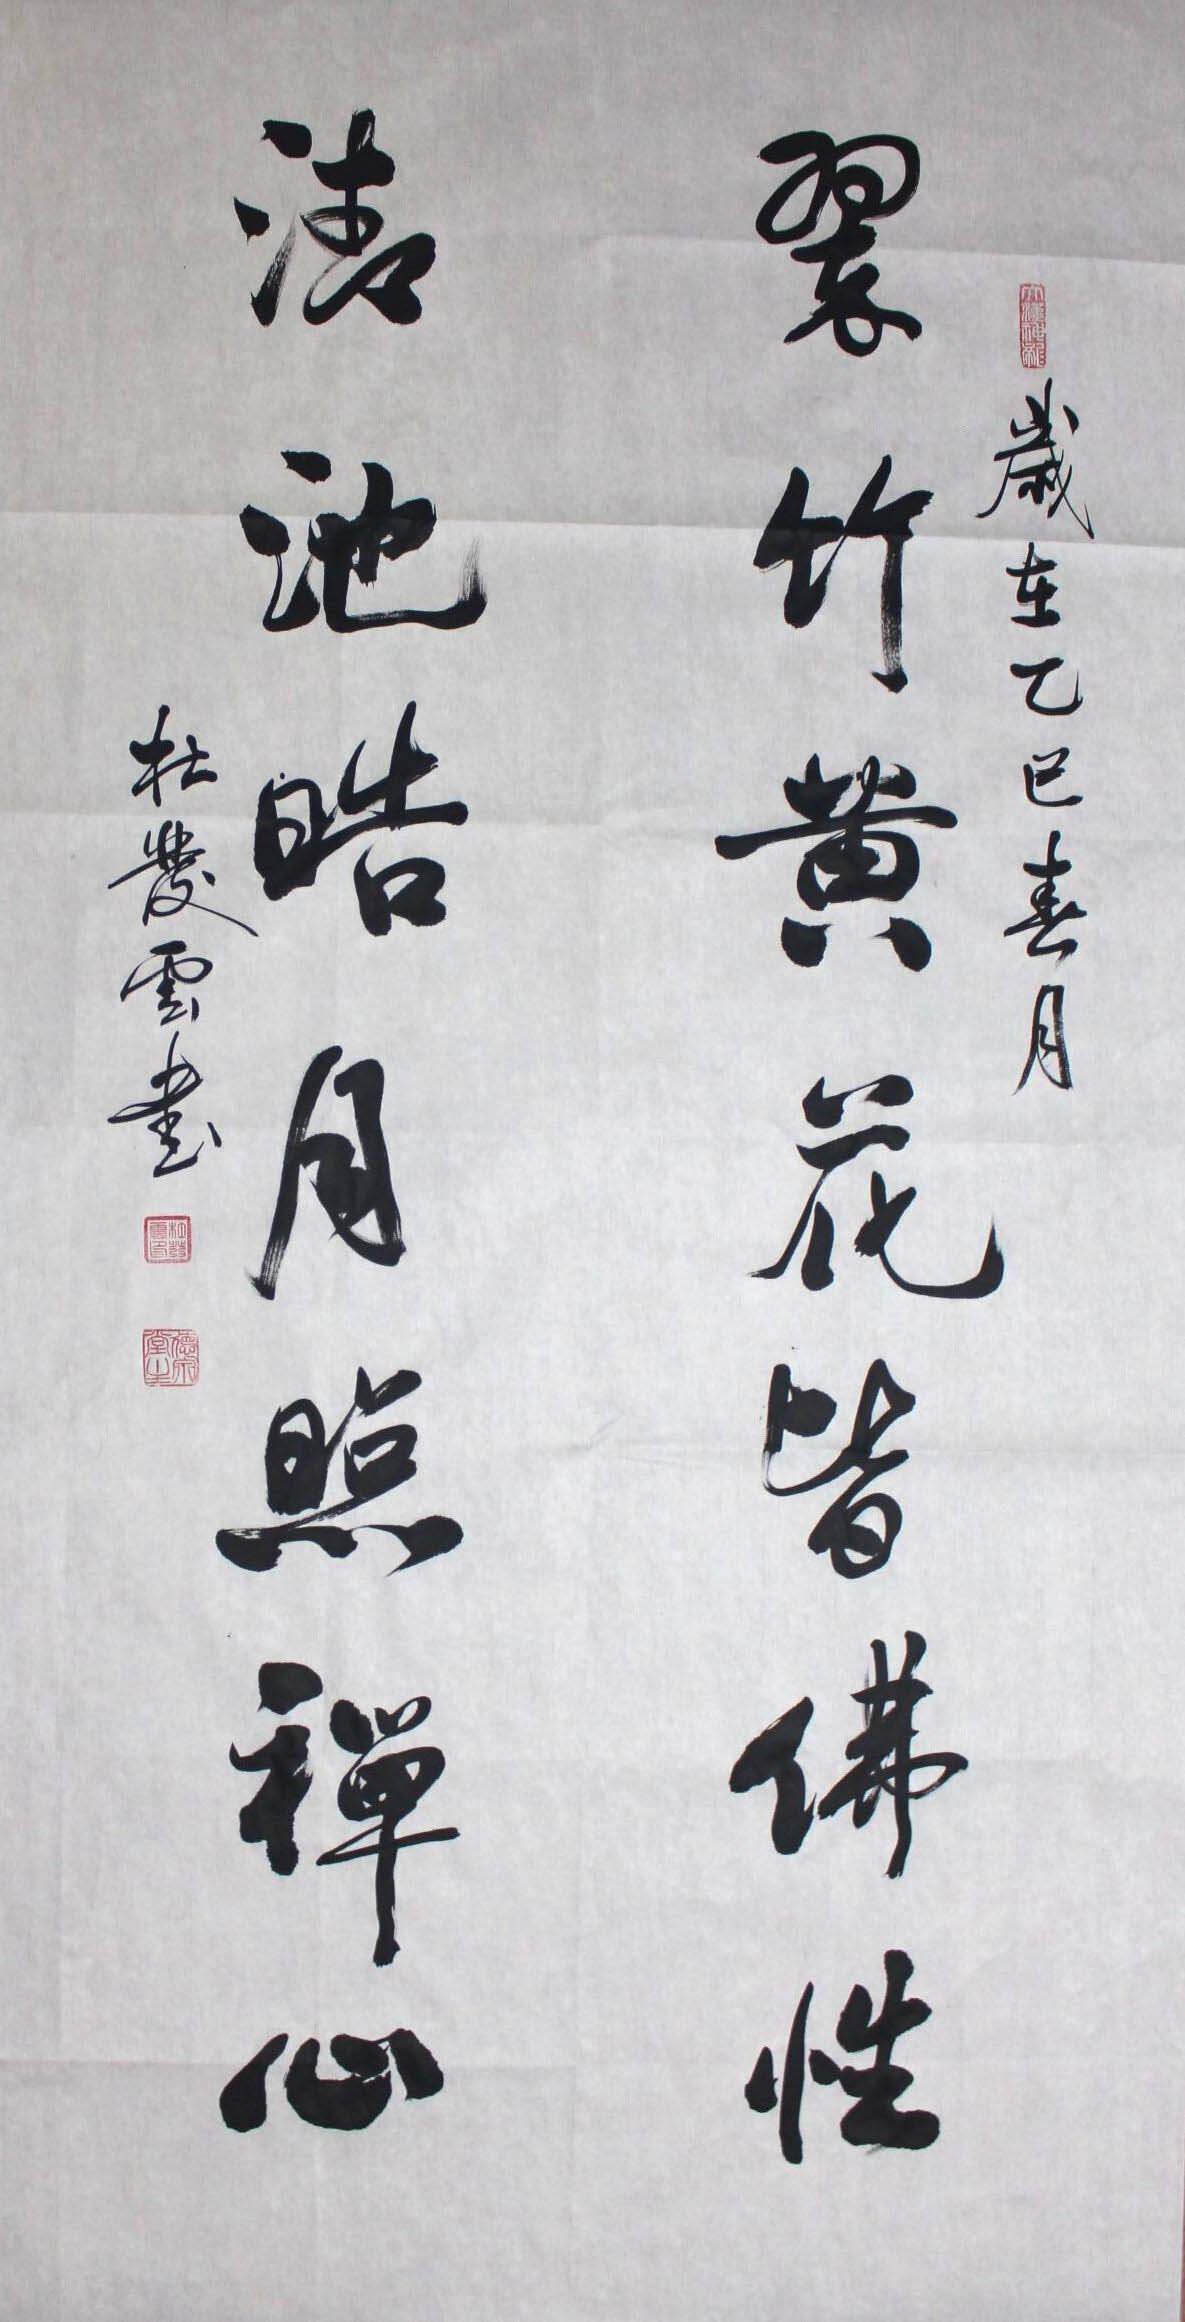 歲在乙巳春月
翠竹黄花皆佛性
清池皓月照禪心
杜發雲書